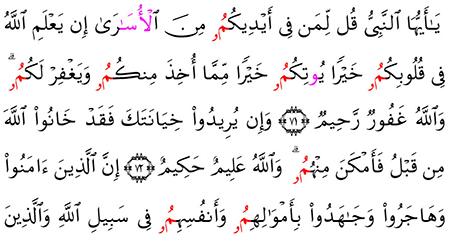 يَٰأَيُّهَا ٱلنَّبِيُّ قُل لِّمَن فِي أَيْدِيكُمُۥ مِنَ ٱلۡأُسَٰرَىٰ إِن يَعۡلَمِ ٱللَّهُ
فِي قُلُوبِكُمُۥ خَيۡرٗا يُوتِكُمُۥ خَيۡرٗا مِّمَّا أُخِذَ مِنكُمُۥ وَيَغۡفِرۡ لَكُمُۥۗ
وَٱللَّهُ غَفُورٞ رَّحِيمٞ ٧١ وَإِن يُرِيدُواْ خِيَانَتَكَ فَقَدۡ خَانُواْ ٱللَّهَ
مِن قَبۡلُ فَأَمۡكَنَ مِنۡهُمُۥۗ وَٱللَّهُ عَلِيمٌ حَكِيمٌ ٧٢ إِنَّ ٱلَّذِينَ ءَامَنُواْ
وَهَاجَرُواْ وَجَٰهَدُواْ بِأَمۡوَٰلِهِمُۥ وَأَنفُسِهِمُۥ فِي سَبِيلِ ٱللَّهِ وَٱلَّذِينَ